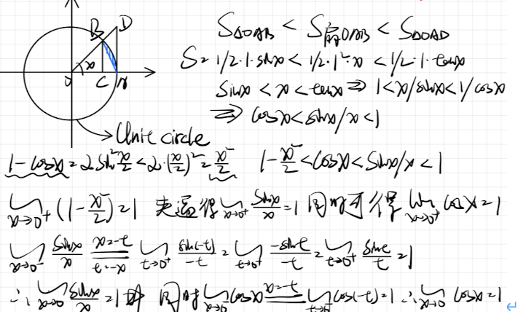 B D
S△OAB < S扇OAB < S△OAD
x
S = 1/2·1·sinx < 1/2·1²·x < 1/2·1·tanx
O C A
sinx < x < tanx ⇒ 1 < x/sinx < 1/cosx
⇒ cosx < sinx/x < 1
Unit circle
1-cosx = 2sin²x/2 < 2·(x/2)² = x²/2 1-x²/2 < cosx < sinx/x < 1
lim x→0⁺ (1-x²/2) = 1 夹逼得 lim x→0⁺ sinx/x = 1 同时可得 lim x→0⁺ cosx = 1
lim x→0⁻ sinx/x x=-t t=-x lim t→0⁺ sin(-t)/-t = lim t→0⁺ -sint/-t = lim t→0⁺ sint/t = 1
∴ lim x→0 sinx/x = 1 同时 lim x→0⁻ cosx x=-t lim t→0⁺ cos(-t) = 1 ∴ lim x→0 cosx = 1